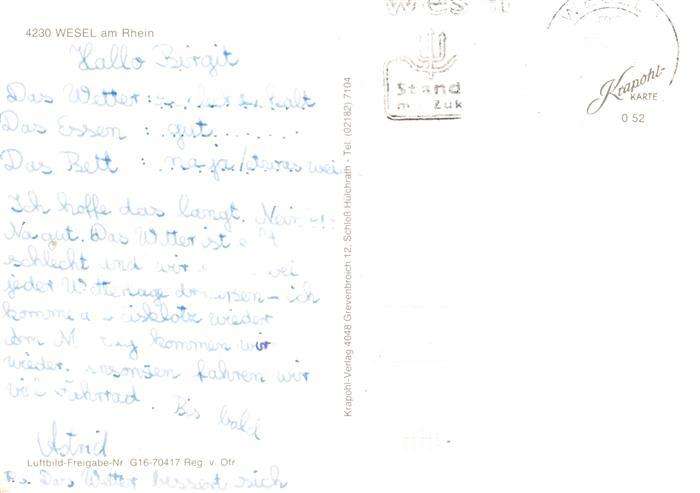 4230 WESEL am Rhein
Hallo Birgit
Das Wetter : kalt
Das Essen : gut
Das Bett : naja
Ich hoffe das langt. Nein
Na gut. Das Wetter ist
schlecht und wir bei
jeder draußen – ich
komme Eisklotz wieder
Am kommen wir
wieder. ansonsten fahren wir
Fahrrad. Bis bald
Astrid
Luftbild-Freigabe-Nr G16-70417 Reg. v. Ofr
P.S. Das Wetter bessert sich
Krapohl-Verlag 4048 Grevenbroich 12, Schloß Hülchrath - Tel. (02182) 7104
Stand
Krapohl-
KARTE
0 52